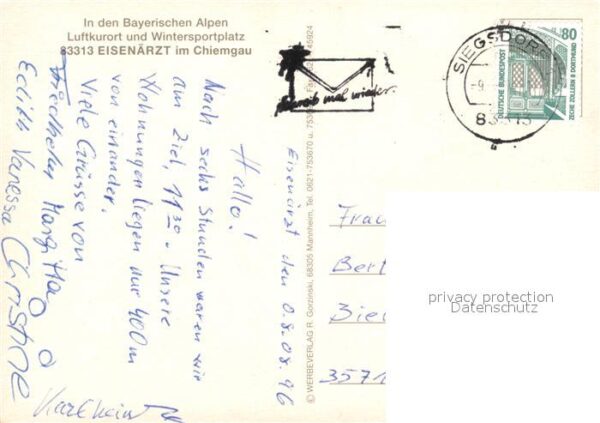 In den Bayerischen Alpen
Luftkurort und Wintersportplatz
83313 EISENÄRZT im Chiemgau
Eisenärzt den 08.08.96
Hallo!
Nach sechs Stunden waren wir
am Ziel, 11³⁰. Unsere
Wohnungen liegen nur 400m
von einander.
Viele Grüsse von
Friedhelm Margitta
Edith Vanessa Christine
Karlheinz
© WERBEVERLAG R. Gorzinski, 68305 Mannheim, Tel. 0621-753670 u.
Schreib mal wieder
SIEGSDORF
80
DEUTSCHE BUNDESPOST
ZECHE ZOLLERN II DORTMUND
Frau
Bert
3571
privacy protection
Datenschutz